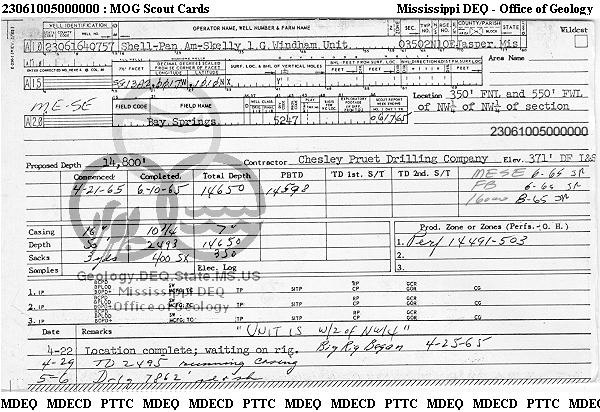 23061005000000 : MOG Scout Cards Mississippi DEQ - Office of Geology
WELL IDENTIFICATION OPERATOR NAME, WELL NUMBER & FARM NAME SEC. COUNTY/PARISH STATE Wildcat
A 10 23061640757 Shell-Pan Am-Skelly 1 G. Windham Unit 03502N10E Jasper, Mis
Area Name
LONGITUDE LATITUDE FEET FEET
A 15
Location 350' FNL and 550' FWL
of NW¼ of NW¼ of section
ME-SE
FIELD CODE FIELD NAME
A 28 Bay Springs 5247 061765
23061005000000
Proposed Depth 14,800' Contractor Chesley Pruet Drilling Company Elev. 371' DF T&S
Commenced Completed Total Depth PBTD TD 1st. S/T TD 2nd. S/T MESE 6-65 SR
4-21-65 6-10-65 14650 14598 FB 6-65 SR
8-65 SR
Casing 16" 10¾ 7" Prod. Zone or Zones (Perfs.-O. H.)
Depth 50' 2493 14650 1. Perf 14491-503
Sacks 3 yds 400 SX 350 2.
Samples Elec. Log 3.
Geology.DEQ.State.MS.US
Mississippi DEQ
Office of Geology
1. IP TP SITP CP GOR CG
2. IP TP SITP CP GOR CG
3. IP TP SITP CP GOR CG
Date Remarks "UNIT IS W/2 of NW/4"
4-22 Location complete; waiting on rig. Big Rig Began 4-25-65
4-29 TD 2495 running casing
5-6 Drlg 7862'
MDEQ MDECD PTTC MDEQ MDECD PTTC MDEQ MDECD PTTC MDEQ MDECD PTTC MDEQ